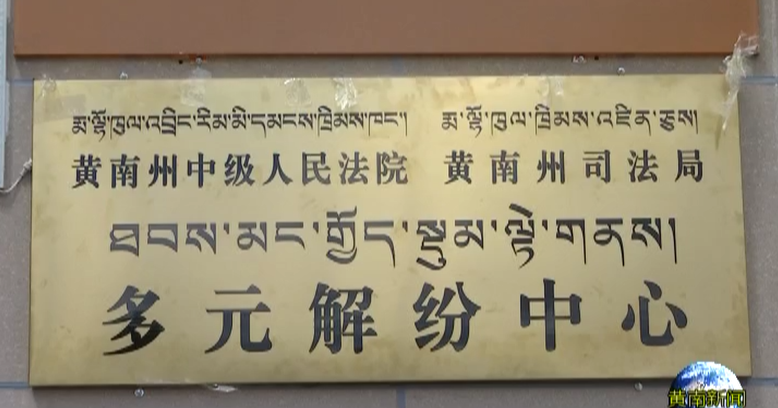 རྨ་ལྷོ་ཁུལ་འབྲིང་རིམ་མི་དམངས་ཁྲིམས་ཁང་། རྨ་ལྷོ་ཁུལ་ཁྲིམས་འཛིན་ཅུས།
黄南州中级人民法院 黄南州司法局
ཐབས་མང་གྱོད་སྡུམ་ལྟེ་གནས།
多元解纷中心
黄南新闻